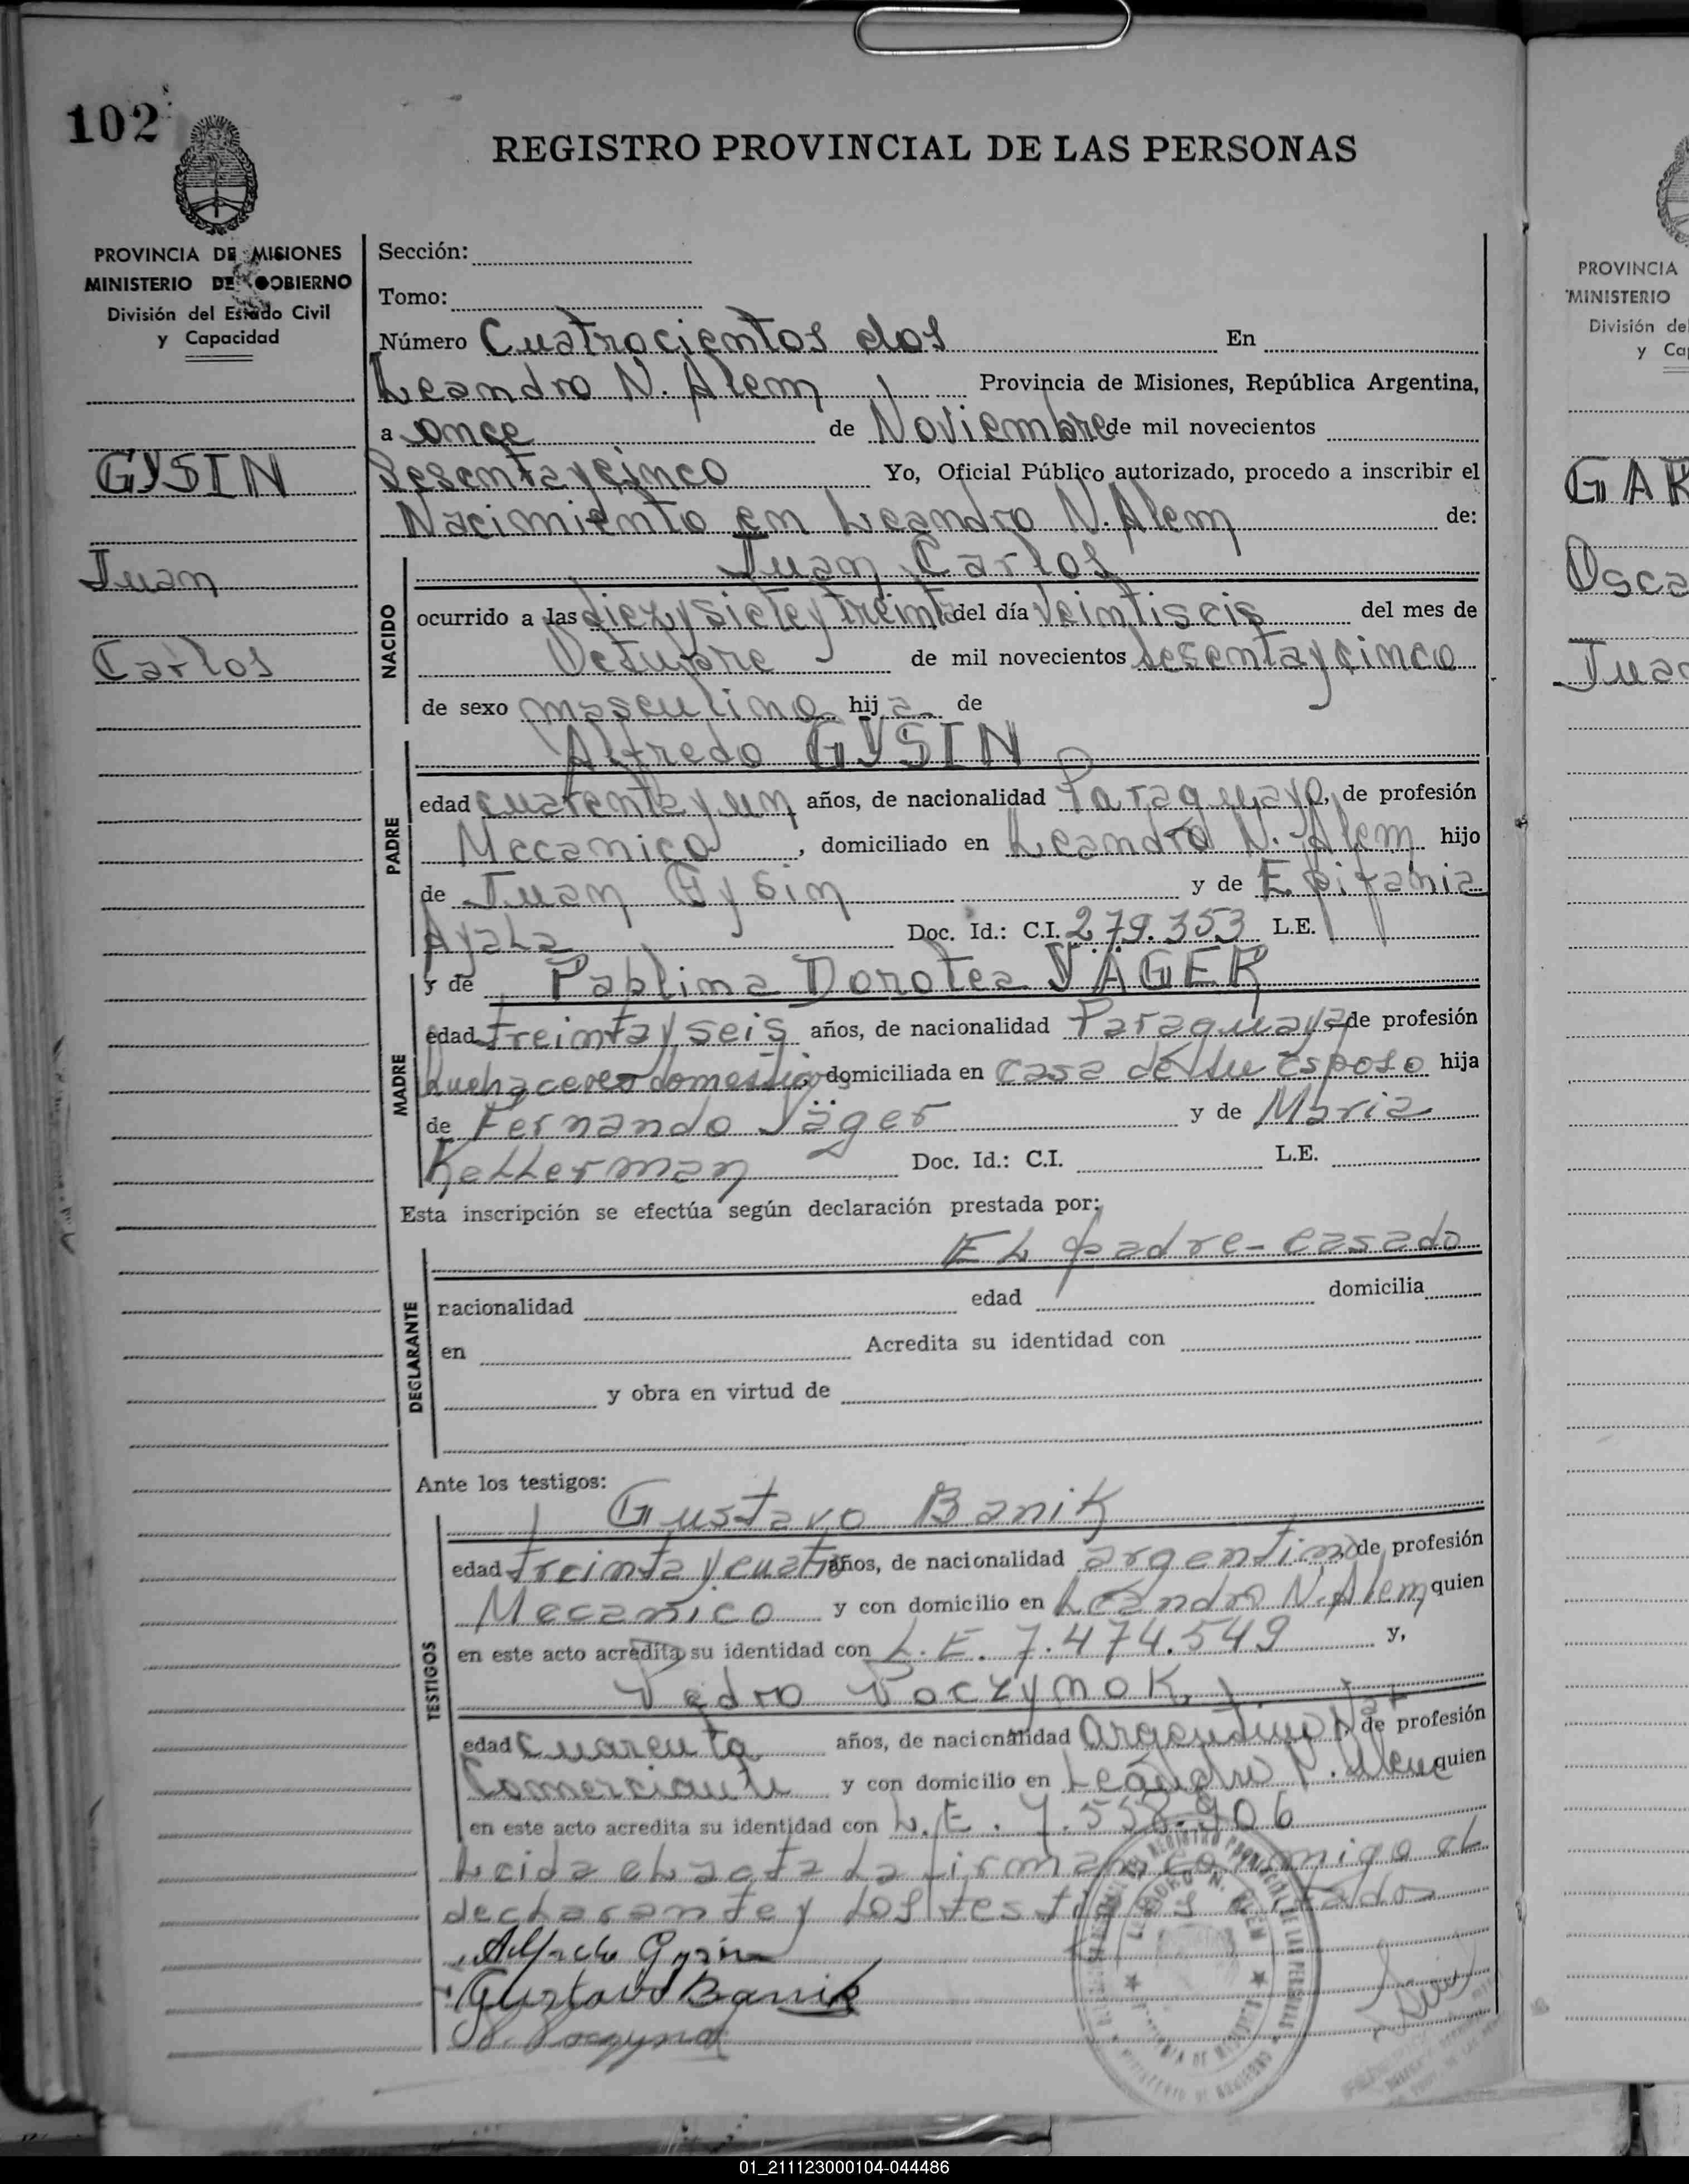 102
REGISTRO PROVINCIAL DE LAS PERSONAS
PROVINCIA DE MISIONES
MINISTERIO DE GOBIERNO
División del Estado Civil
y Capacidad
GYSIN
Juan
Carlos
Sección:
Tomo:
Número Cuatrocientos dos En
Leandro N. Alem Provincia de Misiones, República Argentina,
a once de Noviembre de mil novecientos
Sesentaycinco Yo, Oficial Público autorizado, procedo a inscribir el
Nacimiento en Leandro N. Alem de:
NACIDO
Juan Carlos
ocurrido a las diezysieteytreinta del día Veintiseis del mes de
Octubre de mil novecientos Sesentaycinco
de sexo masculino hij a de
PADRE
Alfredo GYSIN
edad cuarentayun años, de nacionalidad Paraguayo, de profesión
Mecanico, domiciliado en Leandro N. Alem hijo
de Juan Gysin y de Epifania
Ayala Doc. Id.: C.I. 279.353 L.E.
MADRE
y de Pablina Dorotea YÄGER
edad treintayseis años, de nacionalidad Paraguaya de profesión
quehaceres domesticos, domiciliada en casa de su esposo hija
de Fernando Yäger y de Maria
Kellerman Doc. Id.: C.I. L.E.
Esta inscripción se efectúa según declaración prestada por:
DECLARANTE
El padre - casado
nacionalidad edad domicilia
en Acredita su identidad con
y obra en virtud de
Ante los testigos:
TESTIGOS
Gustavo Banik
edad treinta y cuatro años, de nacionalidad argentino, de profesión
Mecanico y con domicilio en Leandro N. Alem quien
en este acto acredita su identidad con L.E. 7.474.549 y,
Pedro Poczynok
edad cuarenta años, de nacionalidad argentino Nat, de profesión
Comerciante y con domicilio en Leandro N. Alem quien
en este acto acredita su identidad con L.E. 7.558.906
Leida el acta la firman conmigo el
declarante y los testigos citados
Alfredo Gysin
Gustavo Banik
P. Poczynok
LEANDRO N. ALEM
PROVINCIA
MINISTERIO
División del
y Ca
GAR
Osca
Juan
01_211123000104-044486